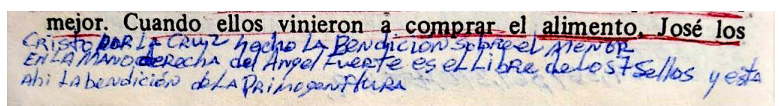 mejor. Cuando ellos vinieron a comprar el alimento, José los
CRISTO POR LA CRUZ hecho LA BENDICION sobre el MENOR
EN LA MANO deRecha del Angel Fuerte es el LibRe de los 7 Sellos y esta
Ahi La bendición de LA PRimogenitURA